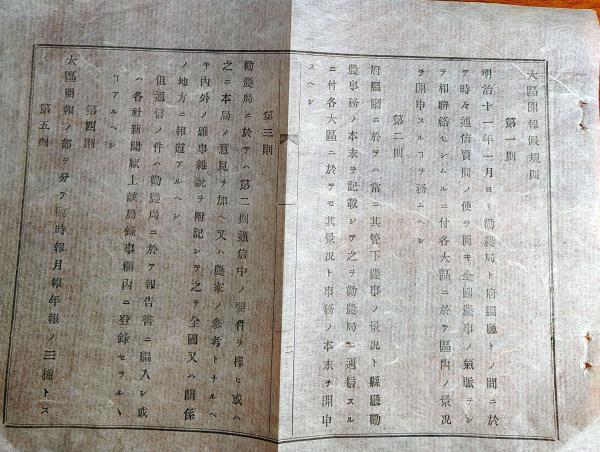 大區開報假規則
第一則
明治十一年一月ヨリ勸農局ト府縣廳トノ間ニ於
テ時々通信質問ノ便ヲ開キ全國農事ノ氣脈ヲシ
テ相聯絡セシムルニ付各大區ニ於テ區内ノ景况
ヲ開申スルヿヲ務ムシ
第二則
府縣廳ニ於テハ常ニ其管下農事ノ景况ト縣廳勸
農事務ノ本末ヲ記載シテ之ヲ勸農局ニ通信スル
ニ付各大區ニ於テモ其景况ト事務ノ本末ヲ開申
スヘシ
第三則
勸農局ニ於テハ第二則通信中ノ要件ヲ擇ヒ或ハ
之ニ本局ノ意見ヲ加ヘ又ハ農家ノ參考トナルヘ
キ内外ノ雜事雜説ヲ附記シテ之ヲ全國又ハ關係
ノ地方ニ報道アルヘシ
但通信ノ件ハ勸農局ニ於テ報告書ニ編入シ或
ハ各社新聞紙上該局錄事欄内ニ登錄セラルヽ
ヿアルヘシ
第四則
大區開報ノ部ヲ分テ臨時報月報年報ノ三種トス
第五則
二